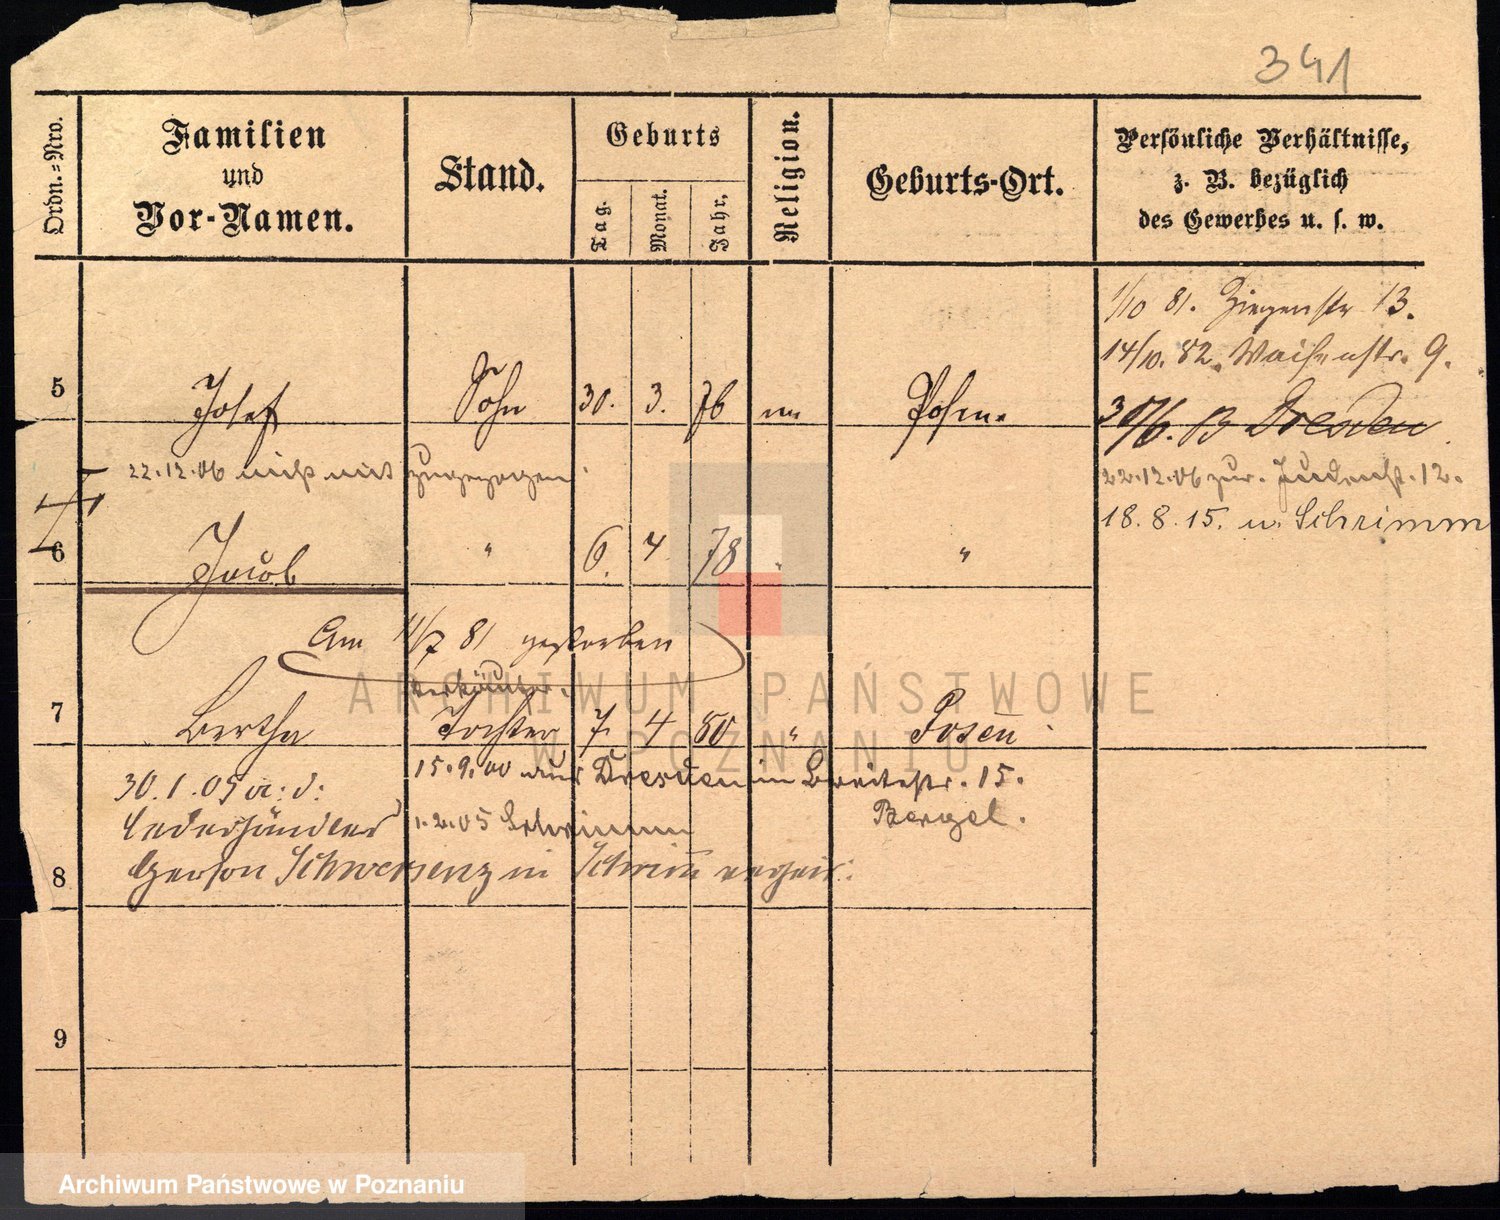 341
Ordn.=Nro.
Familien
und
Vor-Namen.
Stand.
Geburts
Tag.
Monat.
Jahr.
Religion.
Geburts-Ort.
Persönliche Verhältnisse,
z. B. bezüglich
des Gewerbes u. s. w.
1/10 81. Ziegenstr 13.
14/10. 82. Waisenstr. 9.
5 Josef Sohn 30. 3. 76 Posen.
Dresden
22.12.06 nicht mit zugezogen
22.12.06 zur. Judenst. 12.
18. 8. 15. n. Schrimm
6 Jacob " 6. 4 78 "
Am 11/7 81 gestorben
Verkäufer.
7 Bertha Tochter 7. 4 80 " Posen
15.9.00 aus Dresden in Breitestr. 15.
30.1.05 a: d:
Bergel.
Lederhändler
1.2.05 Schrimm
Gerson Schwersenz in Schrimm verheir:
8
9
ARCHIWUM PAŃSTWOWE
W POZNANIU
Archiwum Państwowe w Poznaniu